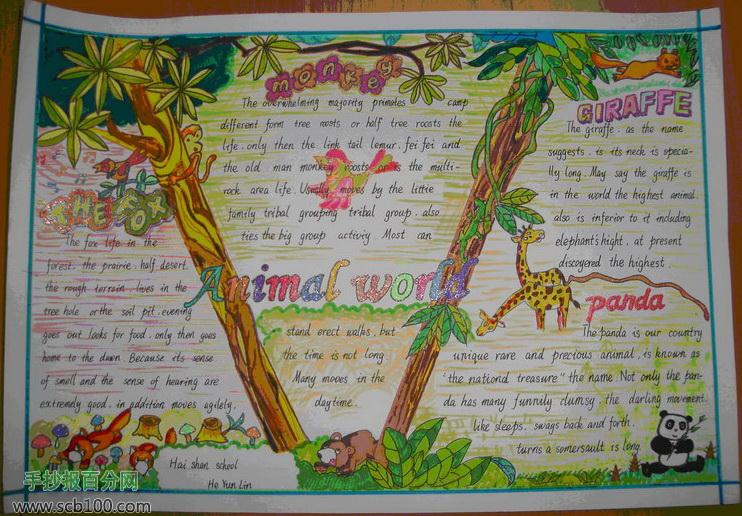 monkey
The overwhelming majority primates camp
different form tree roosts or half tree roosts the
life. only then the link tail lemur. fei fei and
the old man monkey roosts or is the multi-
rock area life. Usually moves by the little
family tribal grouping tribal group. also
ties the big group activiy Most can
stand erect walks, but
the time is not long
Many moves in the
daytime.
THE FOX
The fox life in the
forest. the prairie. half desert.
the rough terrain. lives in the
tree hole or the soil pit. evening
goes out looks for food. only then goes
home to the dawn. Because its sense
of smell and the sense of hearing are
extremely good. in addition moves agilely.
Animal world
GIRAFFE
The giraffe. as the name
suggests. is its neck is specia-
lly long. May say the giraffe is
in the world the highest animal.
also is inferior to it including
elephant's hight. at present
discoyered the highest.
panda
The panda is our country
unique rare and precious animal. is known as
"the nationd treasure" the name. Not only the pan-
da has many funnily clumsy. the darling movement.
like sleeps. swags back and forth.
turns a somersault is long.
Hai shan school
He Yun Lin
手抄报百分网
www.scb100.com